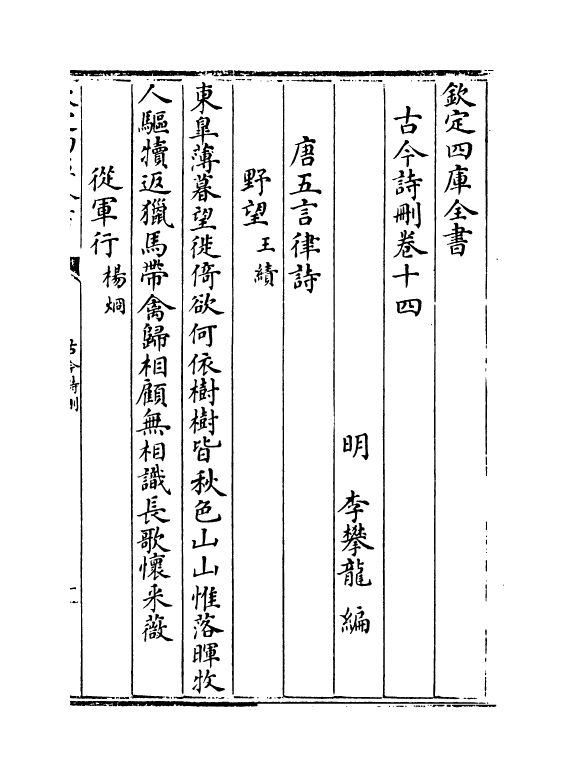 欽定四庫全書
古今詩刪卷十四
明　李攀龍　編
唐五言律詩
野望　王績
東臯薄暮望徙倚欲何依樹樹皆秋色山山惟落暉牧
人驅犢返獵馬帶禽歸相顧無相識長歌懷采薇
從軍行　楊烱
古今詩刪